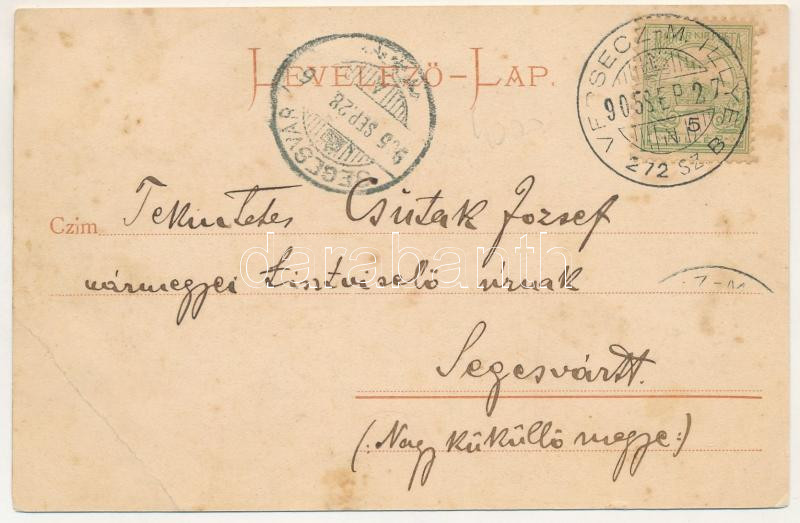 LEVELEZŐ-LAP.
SEGESVÁR
905 SEP. 28
VERSECZ-M. ILLYE
905 SEP. 27
272 SZ. B
5
Czim
Tekintetes Csutak József
vármegyei tisztviselő urnak
darabanth
Segesvártt.
(:Nagy küküllő megye:)
Z-M